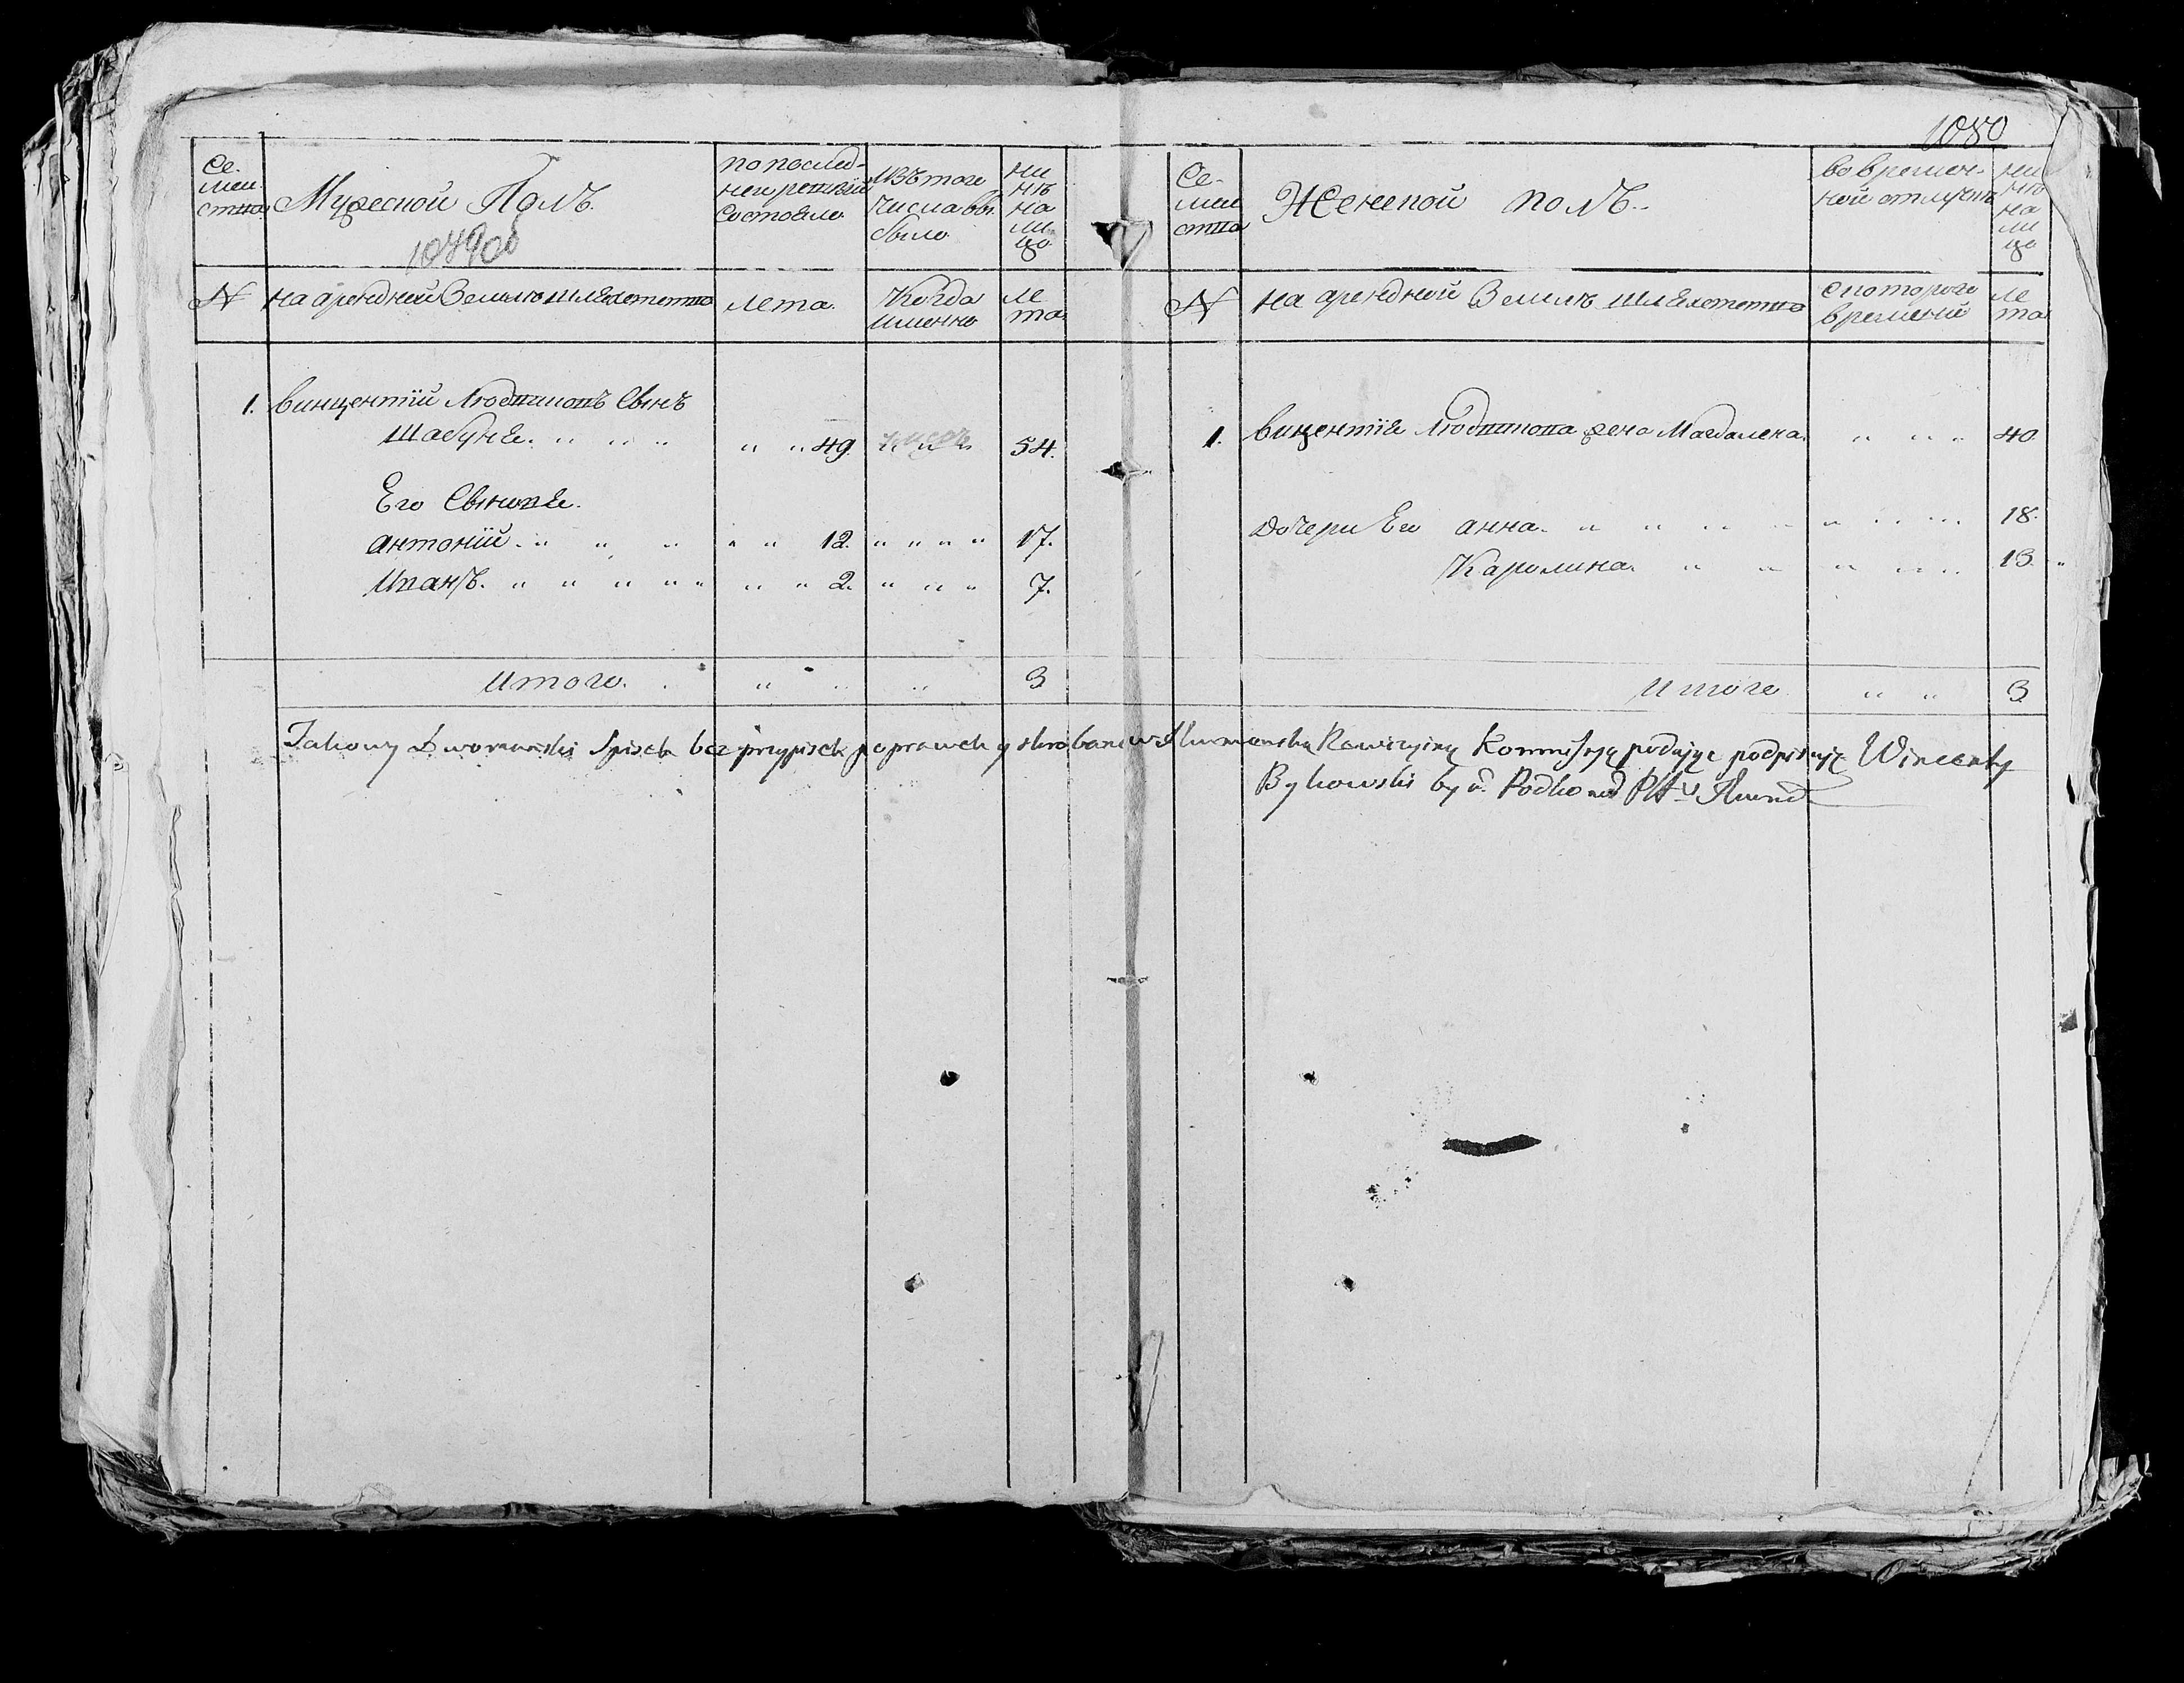 1080
Се-
меи
ства
Мужеской Полъ.
по послед-
ней ревизiи
состояло
Изъ того
числа вы
было
ны
нѣ
на
ли
цо
N
на арендной Землѣ шляхетства
лета.
Когда
именно
ле
та
1. Винцентiй Людвиковъ Сынъ
Шабуня. " " " " " 49. " " " 54.
Его Сыновья.
Антонiй. " " " " " 12. " " " " 17.
Иванъ. " " " " " " " 2. " " " 7.
Итого. " " " 3
Се-
меи
ства
Женской полъ.
во времен-
ной отлучке
ны
нѣ
на
ли
цо
N
на арендной Землѣ шляхетства
с которого
времени
ле
та
1. Вицентiя Людвикова жена Магдалена. " " " 40.
Дочери Его Анна. " " " " " " " 18.
Каролина. " " " " " 13. "
Итого " " 3
Takowy Dworzanski Spisek bez przypisek poprawek y skrobania w Rewizyiną Kommisyą podaiąc podpisuię Wincenty
Bykowski